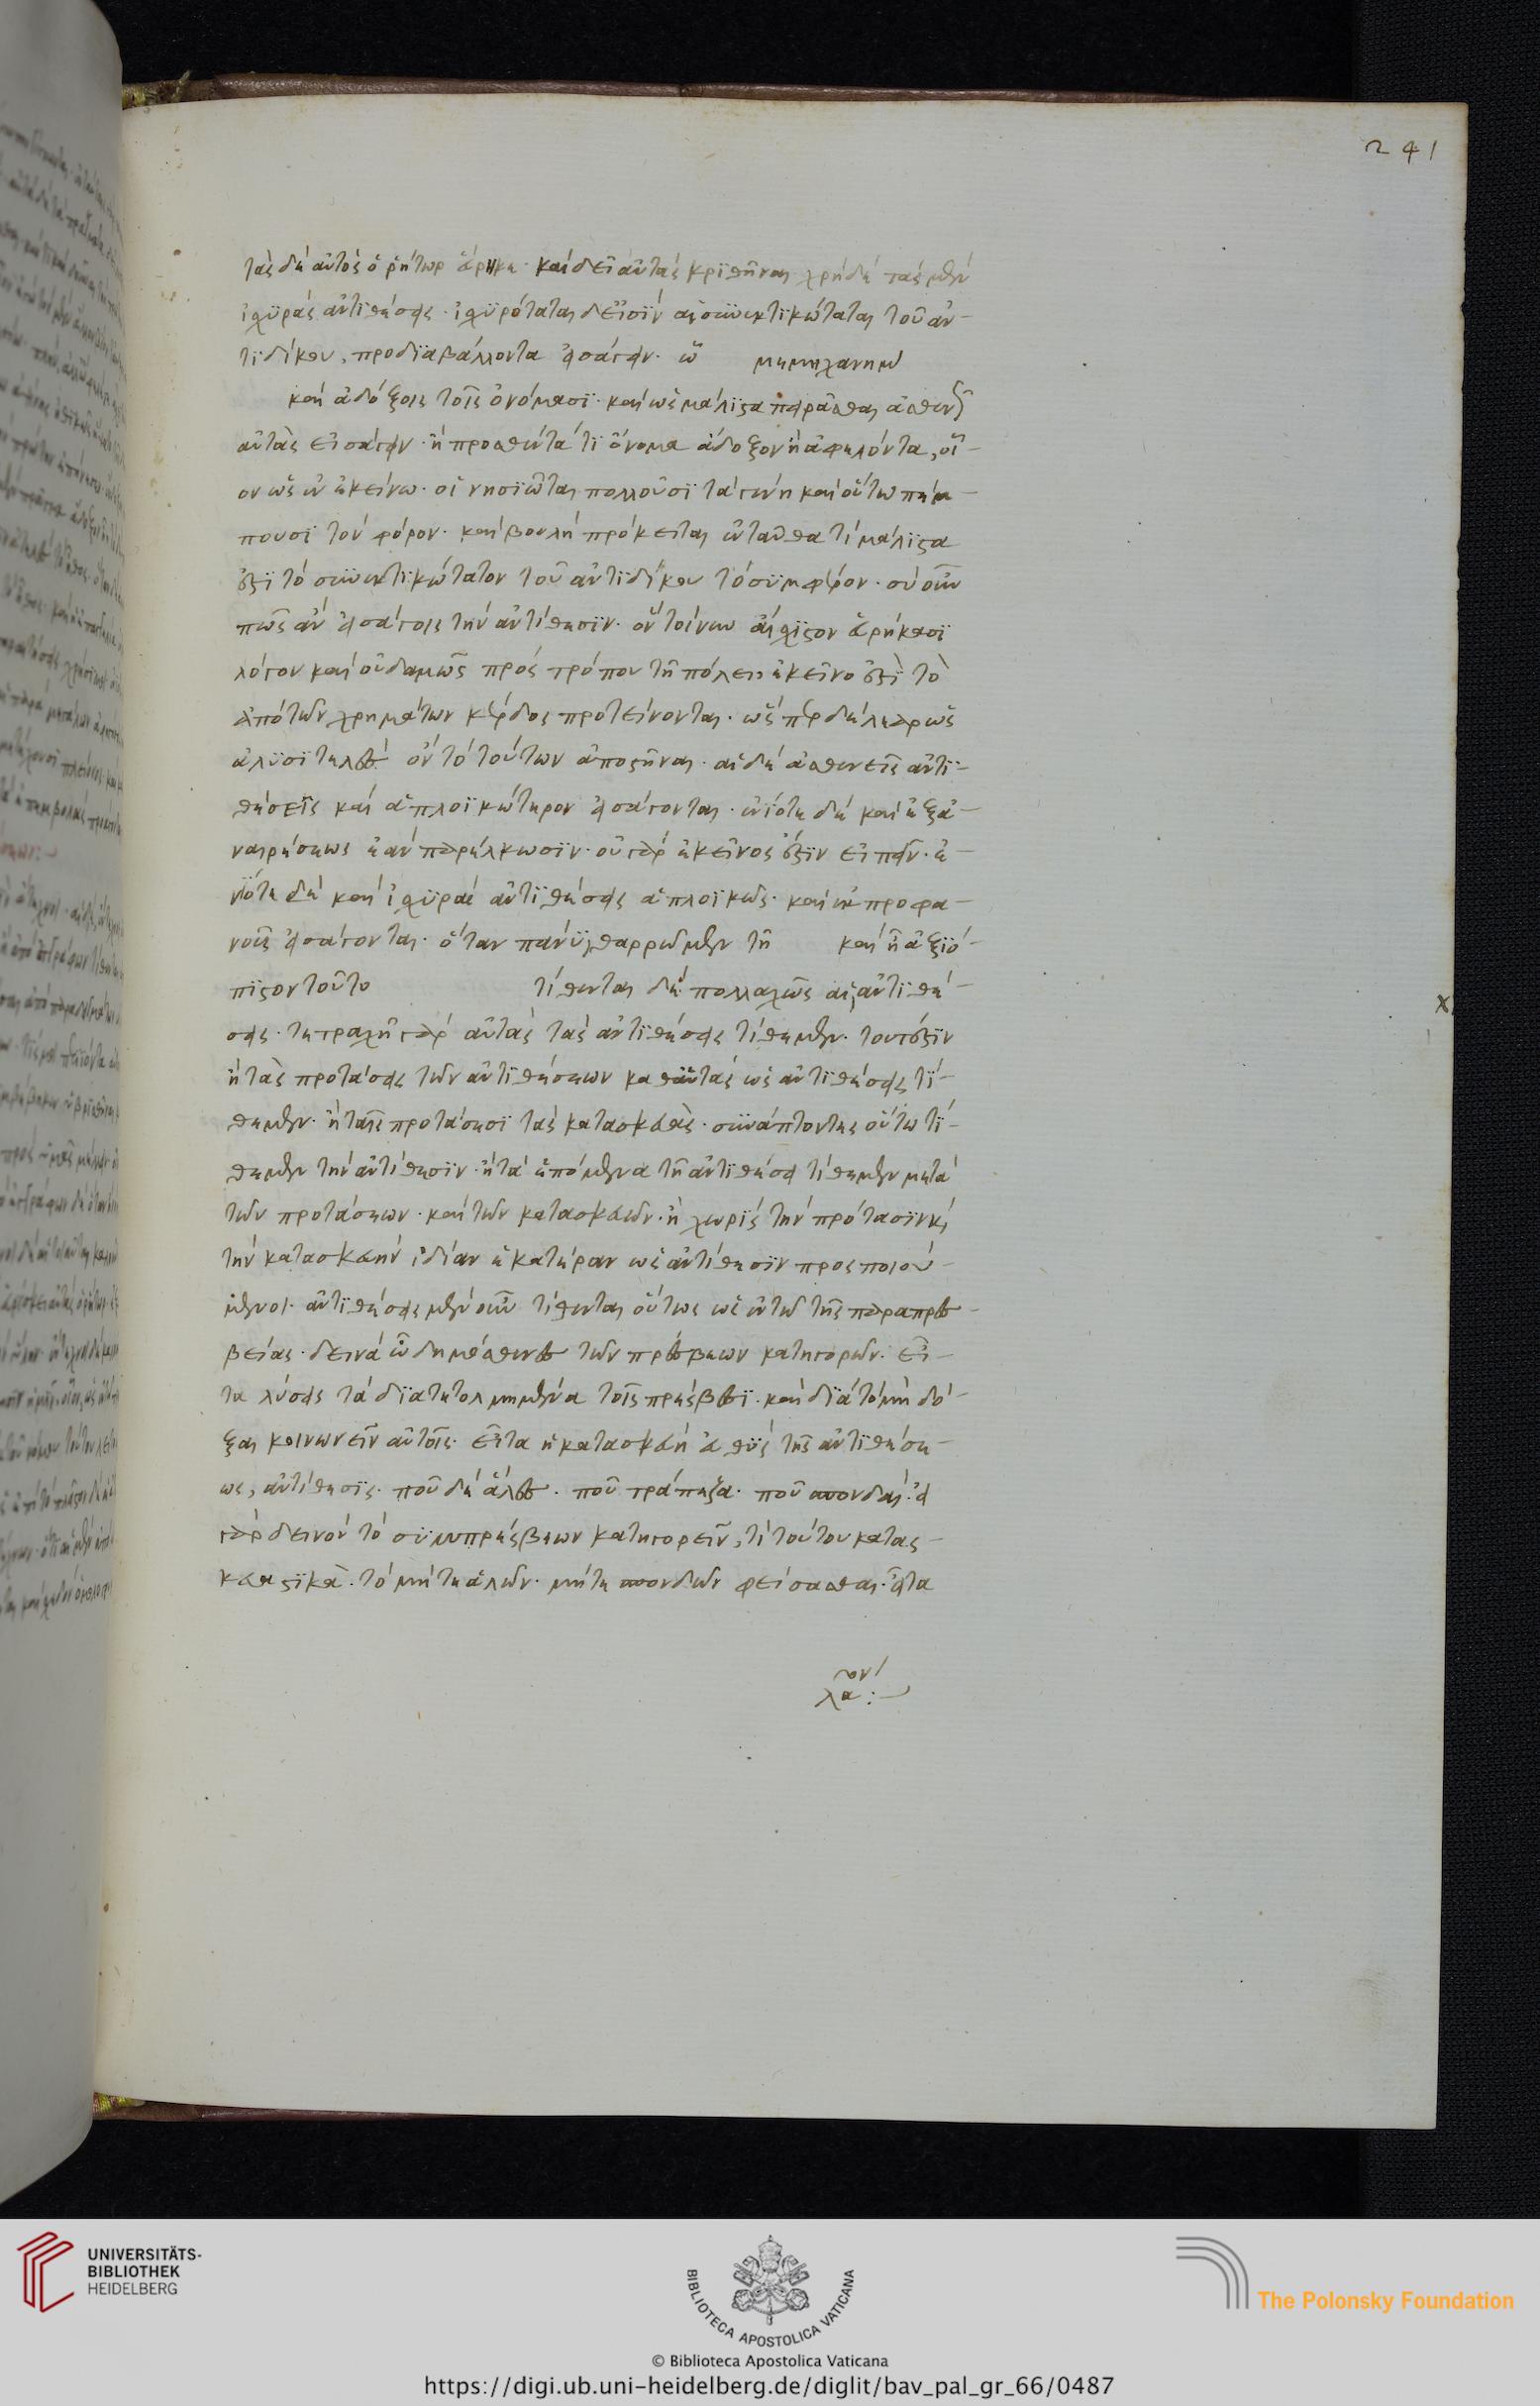 241
τας δὲ αὐτὸς ὁ ῥήτωρ εἴρηκε· καὶ δεῖ αὐτὰς κριθῆναι χρὴ δὲ τὰς μὲν
ἰσχυρὰς ἀντιθέσεις· ἰσχυρόταται δ' εἰσὶν αἱ συνεκτικώταται τοῦ ἀν-
τιδίκου, προδιαβάλλοντα εἰσάγειν·
καὶ ἀδόξοις τοῖς ὀνόμασι· καὶ ὡς μάλιστα πειρᾶσθαι ἀσθενεῖς
αὐτὰς εἰσάγειν· ἢ προσθέντα τι ὄνομα ἄδοξον ἢ ἀφελόντα, οἷ-
ον ὡς ἐν ἐκείνω· οἱ νησιῶται πωλοῦσι τὰ γένη καὶ οὕτω πέμ-
πουσι τὸν φόρον· καὶ βουλὴ πρόκειται ἐνταῦθα τί μάλιστα
ἐστὶ τὸ συνεκτικώτατον τοῦ ἀντιδίκου τὸ συμφέρον· σὺ οὖν
πῶς ἂν εἰσάγοις τὴν ἀντίθεσιν· ὃν τοίνυν αἴσχιστον εἰρήκασι
λόγον καὶ οὐδαμῶς πρὸς τρόπου τῆ πόλει ἐκεῖνο ἐστὶ τὸ
ἀπὸ τῶν χρημάτων κέρδος προτείνονται·
ἀλυσιτελὲς ὂν τὸ τούτων ἀποστῆναι· αἱ δὲ ἀσθενεῖς ἀντι-
θέσεις καὶ ἁπλοϊκώτερον εἰσάγονται· ἐνίοτε δὲ καὶ ἐξ ἀ-
ναιρέσεως ἐὰν παρέλκωσιν· οὐ γὰρ ἐκεῖνος ἐστὶν εἰπεῖν· ἐ-
νίοτε δὲ καὶ ἰσχυραὶ ἀντιθέσεις ἁπλοϊκῶς· καὶ ἐκ προφα-
νοῦς εἰσάγονται· ὅταν πάνυ θαρρῶμεν τῆ καὶ ἢ ἀξιό-
πιστον τοῦτο τίθενται δὲ πολλαχῶς αἱ ἀντιθέ-
σεις· τετραχῆ γὰρ αὐτὰς τὰς ἀντιθέσεις τίθεμεν· τουτέστιν
ἢ τὰς προτάσεις τῶν ἀντιθέσεων καθ' αὑτὰς ὡς ἀντιθέσεις τί-
θεμεν· ἢ ταῖς προτάσεσι τὰς κατασκευὰς· συνάπτοντες οὕτω τί-
θεμεν τὴν ἀντίθεσιν· ἢ τὰ ἑπόμενα τῆ ἀντιθέσει τίθεμεν μετὰ
τῶν προτάσεων· καὶ τῶν κατασκευῶν· ἢ χωρὶς τὴν πρότασιν καὶ
τὴν κατασκευὴν ἰδίαν ἑκατέραν ὡς ἀντίθεσιν προσποιού-
μενοι· ἀντιθέσεις μὲν οὖν τίθενται οὕτως ὡς ἐν τῶ τῆς παραπρεσ-
βείας· δεινὰ ὦ δημόσθενες τῶν πρέσβεων κατηγορῶν· εἶ-
τα λύσεις τὰ διατετολμημένα τοῖς πρέσβεσι· καὶ διὰ τὸ μὴ δό-
ξαι κοινωνεῖν αὐτοῖς· εἶτα ἡ κατασκευὴ εὐθὺς τῆς ἀντιθέσε-
ως, ἀντίθεσις· ποῦ δὲ ἅλες· ποῦ τράπεζα· ποῦ σπονδαί· εἰ
γὰρ δεινὸν τὸ συμπρέσβεων κατηγορεῖν, τί τούτου κατασ-
κευαστικὰ· τὸ μήτε ἁλῶν· μήτε σπονδῶν φείσασθαι· εἶτα
UNIVERSITÄTS-
BIBLIOTHEK
HEIDELBERG
BIBLIOTECA APOSTOLICA VATICANA
The Polonsky Foundation
© Biblioteca Apostolica Vaticana
https://digi.ub.uni-heidelberg.de/diglit/bav_pal_gr_66/0487